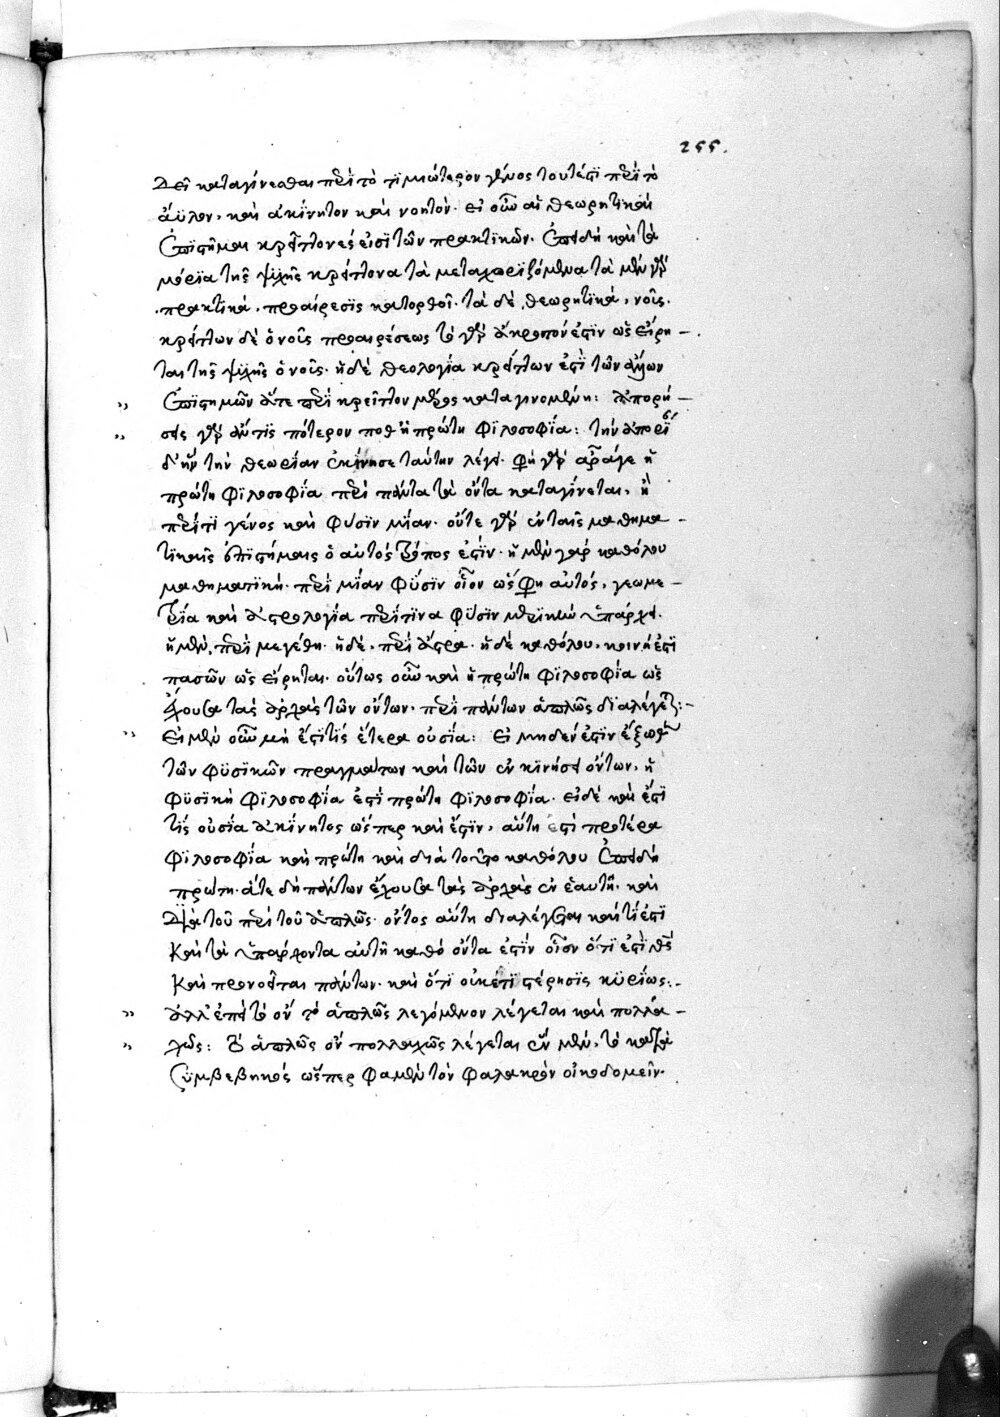 255.
δεῖ καταγίνεσθαι περὶ τὸ τϊμιώτερον γένος τουτέστϊ περὶ τὸ
ἄϋλον, καὶ ἀκΐνητον καὶ νοητόν. εἰ οὖν αἱ θεωρητικαὶ
ἐπϊστῆμαι κρείττονές εἰσϊ τῶν πρακτϊκῶν. ἐπειδὴ καὶ τὰ
μόρϊα τῆς ψυχῆς κρείττονα τὰ μεταχειρϊζόμενα τὰ μὲν γὰρ
πρακτϊκά, προαίρεσϊς κατορθοῖ. τὰ δὲ θεωρητϊκά, νοῦς.
κρείττων δὲ ὁ νοῦς προαιρέσεως τὸ γὰρ ἀκρότατόν ἐστϊν ὡς εἴρη –
ται τῆς ψυχῆς ὁ νοῦς. ἡ δὲ θεολογΐα κρείττων ἐστὶ τῶν ἄλλων
ἐπϊστημῶν ἅτε περὶ κρεῖττον μέρος καταγινομένη: ἀπορή –
σειε γὰρ ἄν τις πότερόν ποθ' ἡ πρώτη φϊλοσοφΐα: τὴν ἀπορΐαν
δι' ἣν τὴν θεωρΐαν ἐκΐνησε ταύτην λέγει. φησὶ γὰρ ἆρά γε ἡ
πρώτη φϊλοσοφΐα περὶ πάντα τὰ ὄντα καταγίνεται, ἢ
περὶ τϊ γένος καὶ φύσϊν μΐαν. οὔτε γὰρ ἐν ταῖς μαθημα –
τϊκαῖς ἐπϊστήμαις ὁ αὐτὸς τρόπος ἐστΐν. ἡ μὲν γὰρ καθόλου
μαθηματϊκή. περὶ μΐαν φύσϊν οἷον ὥς φησιν αὐτός, γεωμε –
τρΐα καὶ ἀστρολογΐα περΐ τϊνα φύσϊν μερϊκὴν ὑπάρχει.
ἡ μὲν, περὶ μεγέθη. ἡ δὲ, περὶ ἄστρα. ἡ δὲ καθόλου, κοινή ἐστϊ
πασῶν ὡς εἴρηται. οὕτως οὖν καὶ ἡ πρώτη φϊλοσοφΐα ὡς
ἔχουσα τὰς ἀρχὰς τῶν ὄντων. περὶ πάντων ἁπλῶς διαλέγεται: –
εἰ μὲν οὖν μὴ ἔστϊ τΐς ἑτέρα οὐσΐα: εἰ μηδέν ἐστϊν ἔξωθεν
τῶν φϋσϊκῶν πραγμάτων καὶ τῶν ἐν κινήσει ὄντων, ἡ
φϋσϊκὴ φϊλοσοφΐα ἐστὶ πρώτη φϊλοσοφΐα. εἰ δὲ καὶ ἔστϊ
τΐς οὐσΐα ἀκΐνητος ὥσπερ καὶ ἔστϊν, αὕτη ἐστὶ προτέρα
φϊλοσοφΐα καὶ πρώτη καὶ διὰ τοῦτο καθόλου ἐπειδὴ
πρώτη. ἅτε δὴ πάντων ἔχουσα τὰς ἀρχὰς ἐν ἑαυτῇ. καὶ
διὰ τοῦ περὶ τοῦ ἁπλῶς. ὄντος αὕτη διαλέγεσθαι καὶ τΐ ἐστϊ
καὶ τὰ ὑπάρχοντα αὐτῇ καθὸ ὄντα ἐστΐν οἷον ὅτϊ ἐστὶ θεὸς
καὶ προνοεῖται πάντων. καὶ ὅτϊ οὐκ ἔστϊ στέρησϊς κϋρΐως: –
ἀλλ' ἐπεὶ τὸ ὂν τὸ ἁπλῶς λεγόμενον λέγεται καὶ πολλα –
χῶς: τὸ ἁπλῶς ὂν πολλαχῶς λέγεται ἓν μὲν, τὸ κατὰ
συμβεβηκός ὥσπερ φαμὲν τὸν φαλακρὸν οἰκοδομεῖν.